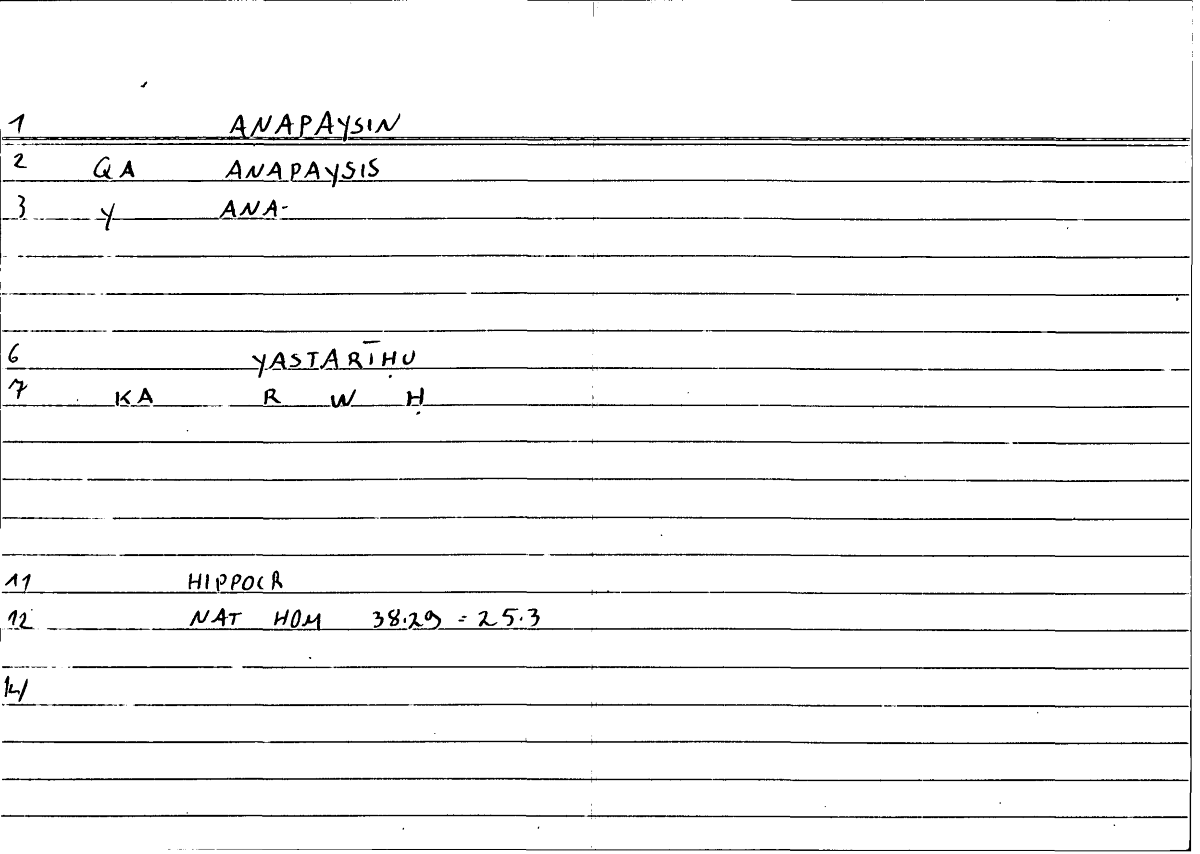 1 ANAPAYSIN
2 QA ANAPAYSIS
3 Y ANA-
6 YASTARĪḤU
7 KA R W Ḥ
11 HIPPOCR
12 NAT HOM 38.29 = 25.3
14/